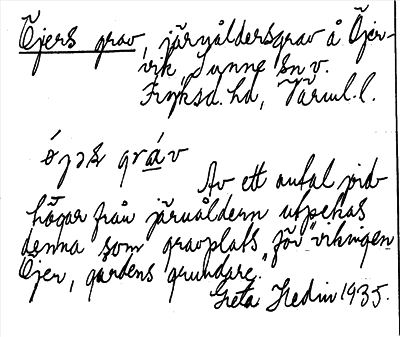 Öjers grav, järnåldersgrav å Öjer-
vik, Sunne sn v.
Fryksd. hd, Värml. l.
Av ett antal jord-
högar från järnåldern utpekas
denna som gravplats för "vikingen
Öjer, gårdens grundare."
Greta Hedin 1935.